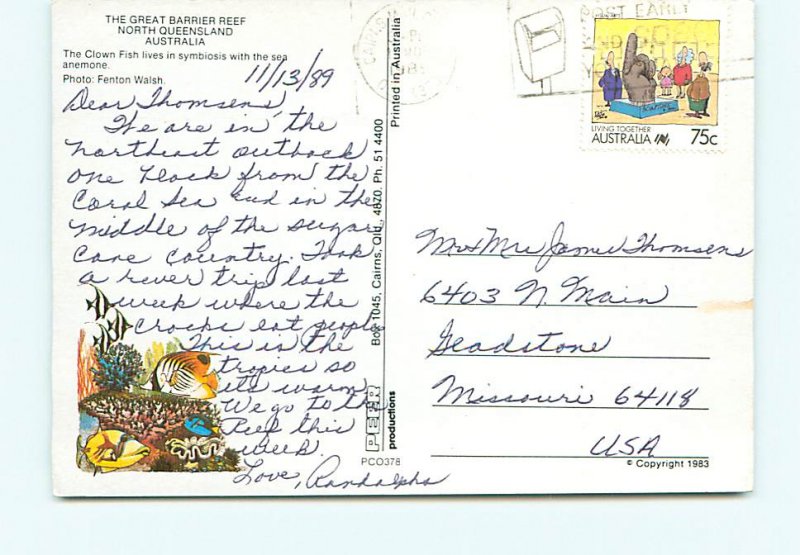 THE GREAT BARRIER REEF
NORTH QUEENSLAND
AUSTRALIA
The Clown Fish lives in symbiosis with the sea
anemone.
Photo: Fenton Walsh.
11/13/89
Dear Thomsens,
We are in the
northeast outback
one block from the
Coral Sea and in the
middle of the sugar
cane country. Took
a river trip last
week where the
crocks eat people
This is the
tropics so
its warm
We go to the
Reef this
week.
Love, Randolphs
Printed in Australia
Box 1045, Cairns, Qld., 4870. Ph. 51 4400
PEER
productions
PCO378
POST EARLY
LIVING TOGETHER
AUSTRALIA 75c
Mr & Mrs James Thomsens
6403 N Main
Gladstone
Missouri 64118
USA
© Copyright 1983